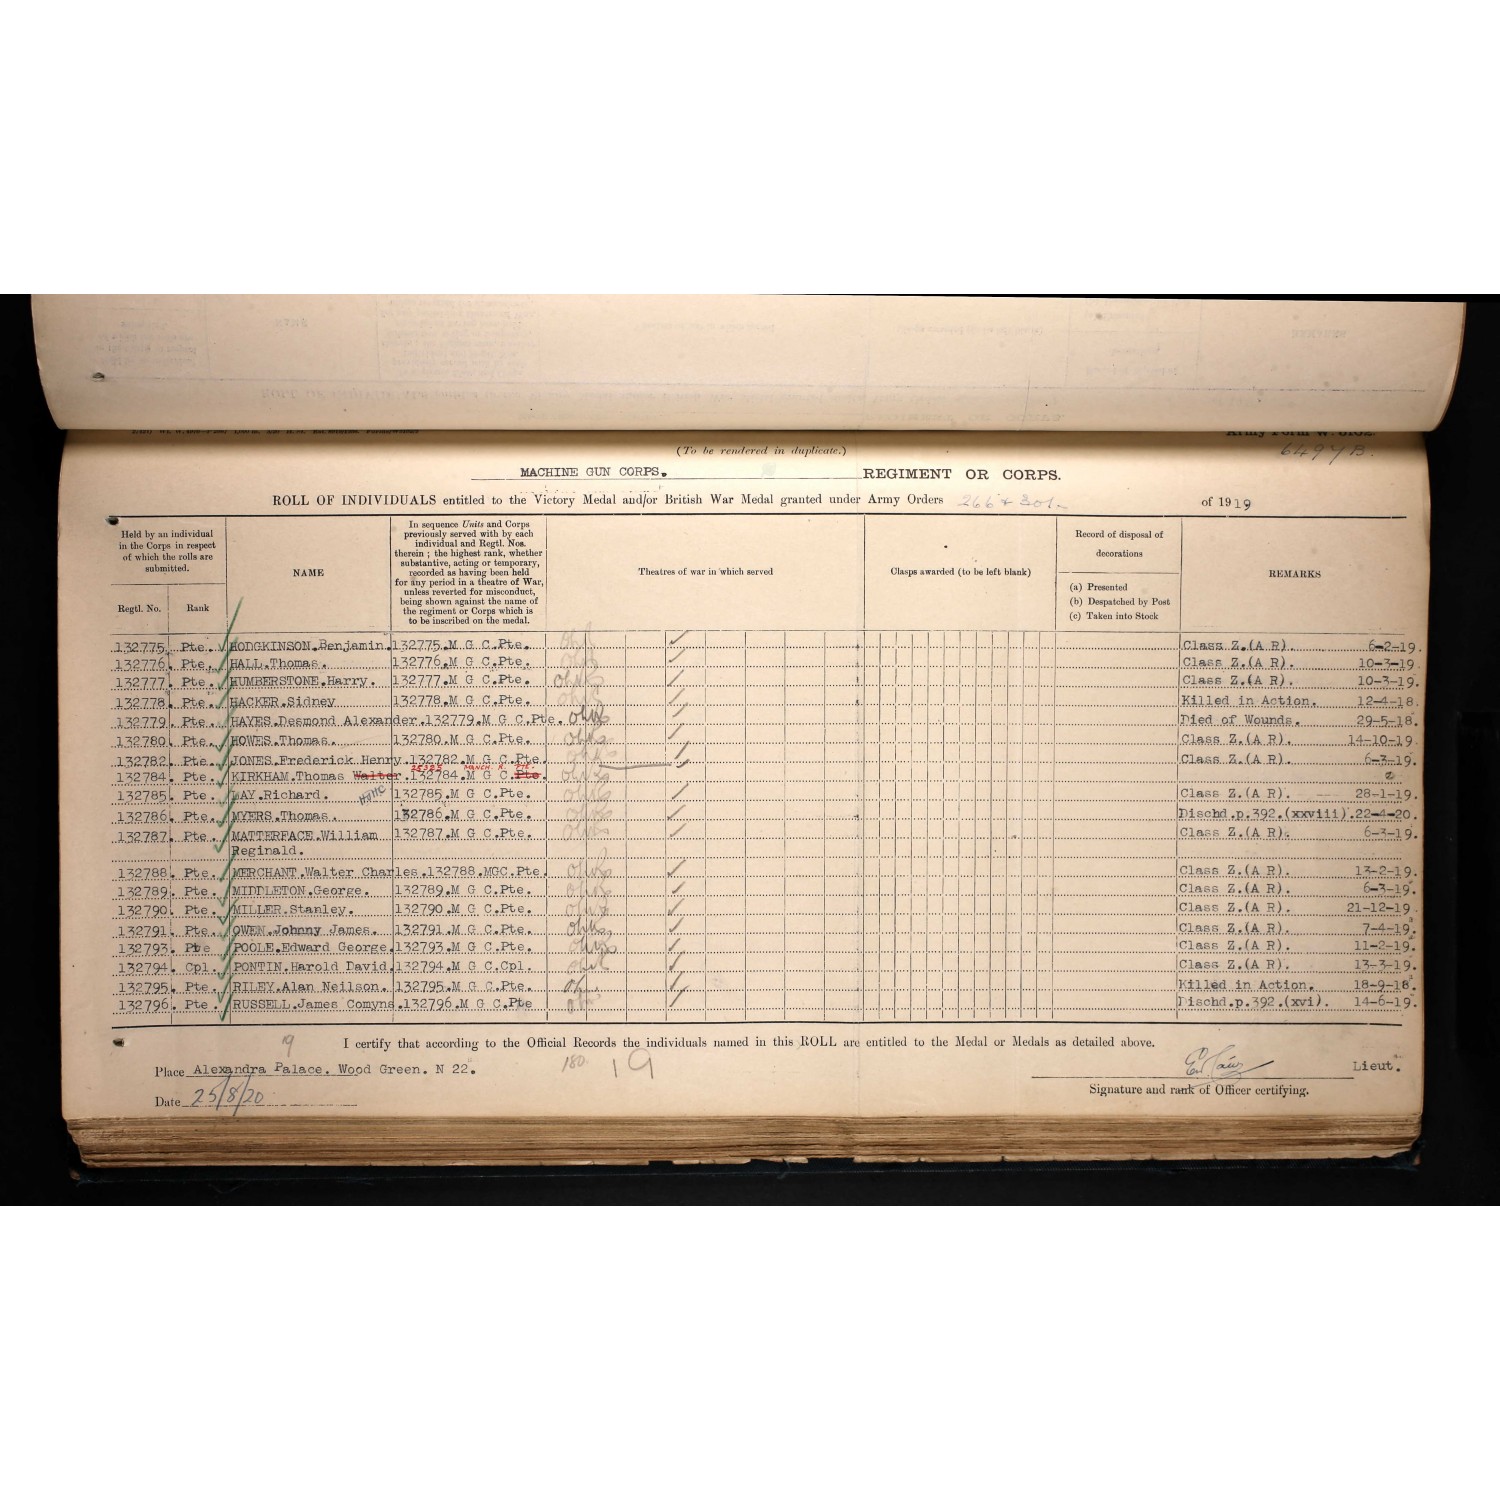 (To be rendered in duplicate.)
6494B.
MACHINE GUN CORPS. REGIMENT OR CORPS.
ROLL OF INDIVIDUALS entitled to the Victory Medal and/or British War Medal granted under Army Orders 266 + 301 of 1919
Held by an individual in the Corps in respect of which the rolls are submitted.
Regtl. No. Rank
NAME
In sequence Units and Corps previously served with by each individual and Regtl. Nos. therein ; the highest rank, whether substantive, acting or temporary, recorded as having been held for any period in a theatre of War, unless reverted for misconduct, being shown against the name of the regiment or Corps which is to be inscribed on the medal.
Theatres of war in which served
Clasps awarded (to be left blank)
Record of disposal of decorations
(a) Presented
(b) Despatched by Post
(c) Taken into Stock
REMARKS
132775. Pte. HODGKINSON.Benjamin. 132775.M G C.Pte. Class Z.(A R). 6-2-19.
132776. Pte. HALL.Thomas. 132776.M G C.Pte. Class Z.(A R). 10-3-19.
132777. Pte. HUMBERSTONE.Harry. 132777.M G C.Pte. Class Z.(A R). 10-3-19.
132778. Pte. HACKER.Sidney 132778.M G C.Pte. Killed in Action. 12-4-18.
132779. Pte. HAYES.Desmond Alexander.132779.M G C.Pte. Died of Wounds. 29-5-18.
132780. Pte. HOWES.Thomas. 132780.M G C.Pte. Class Z.(A R). 14-10-19.
132782. Pte. JONES.Frederick Henry.132782.M G C.Pte. Class Z.(A R). 6-3-19.
25325 MANCH. R. PTE.
132784. Pte. KIRKHAM.Thomas Walter.132784.M G C.Pte.
132785. Pte. LAY.Richard. 132785.M G C.Pte. Class Z.(A R). 28-1-19.
132786. Pte. MYERS.Thomas. 132786.M G C.Pte. Dischd.p.392.(xxviii).22-4-20.
132787. Pte. MATTERFACE.William 132787.M G C.Pte. Class Z.(A R). 6-3-19.
Reginald.
132788. Pte. MERCHANT.Walter Charles.132788.MGC.Pte. Class Z.(A R). 13-2-19.
132789. Pte. MIDDLETON.George. 132789.M G C.Pte. Class Z.(A R). 6-3-19.
132790. Pte. MILLER.Stanley. 132790.M G C.Pte. Class Z.(A R). 21-12-19.
132791. Pte. OWEN.Johnny James. 132791.M G C.Pte. Class Z.(A R). 7-4-19.
132793. Pte POOLE.Edward George.132793.M G C.Pte. Class Z.(A R). 11-2-19.
132794. Cpl. PONTIN.Harold David.132794.M G C.Cpl. Class Z.(A R). 13-3-19.
132795. Pte. RILEY.Alan Neilson. 132795.M G C.Pte. Killed in Action. 18-9-18.
132796. Pte. RUSSELL.James Comyns.132796.M G C.Pte Dischd.p.392.(xvi). 14-6-19.
I certify that according to the Official Records the individuals named in this ROLL are entitled to the Medal or Medals as detailed above.
19 180 19
Place Alexandra Palace. Wood Green. N 22. Lieut.
Signature and rank of Officer certifying.
Date 25/8/20